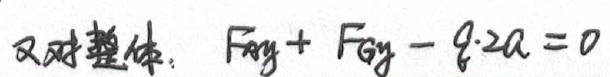 又对整体: F_Ay + F_Gy - q·2a = 0